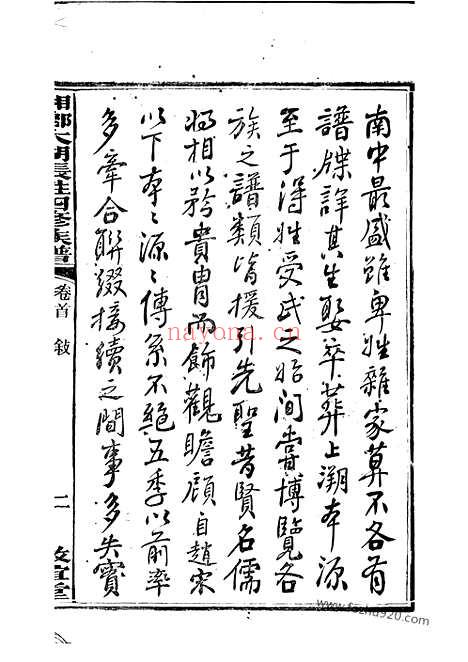 南中最盛雖卑姓雜家莫不各有
譜牒詳其生娶卒葬上溯本源
至于得姓受氏之始间嘗博覽各
族之譜類皆援引先聖昔賢名儒
將相以誇貴胄而飾觀瞻顧自趙宋
以下本〻源〻傳系不絕五季以前率
多牽合聯綴接續之間事多失實
四修族譜
卷首 敍
二
堂
nayona.cn
www.fozhu920.com